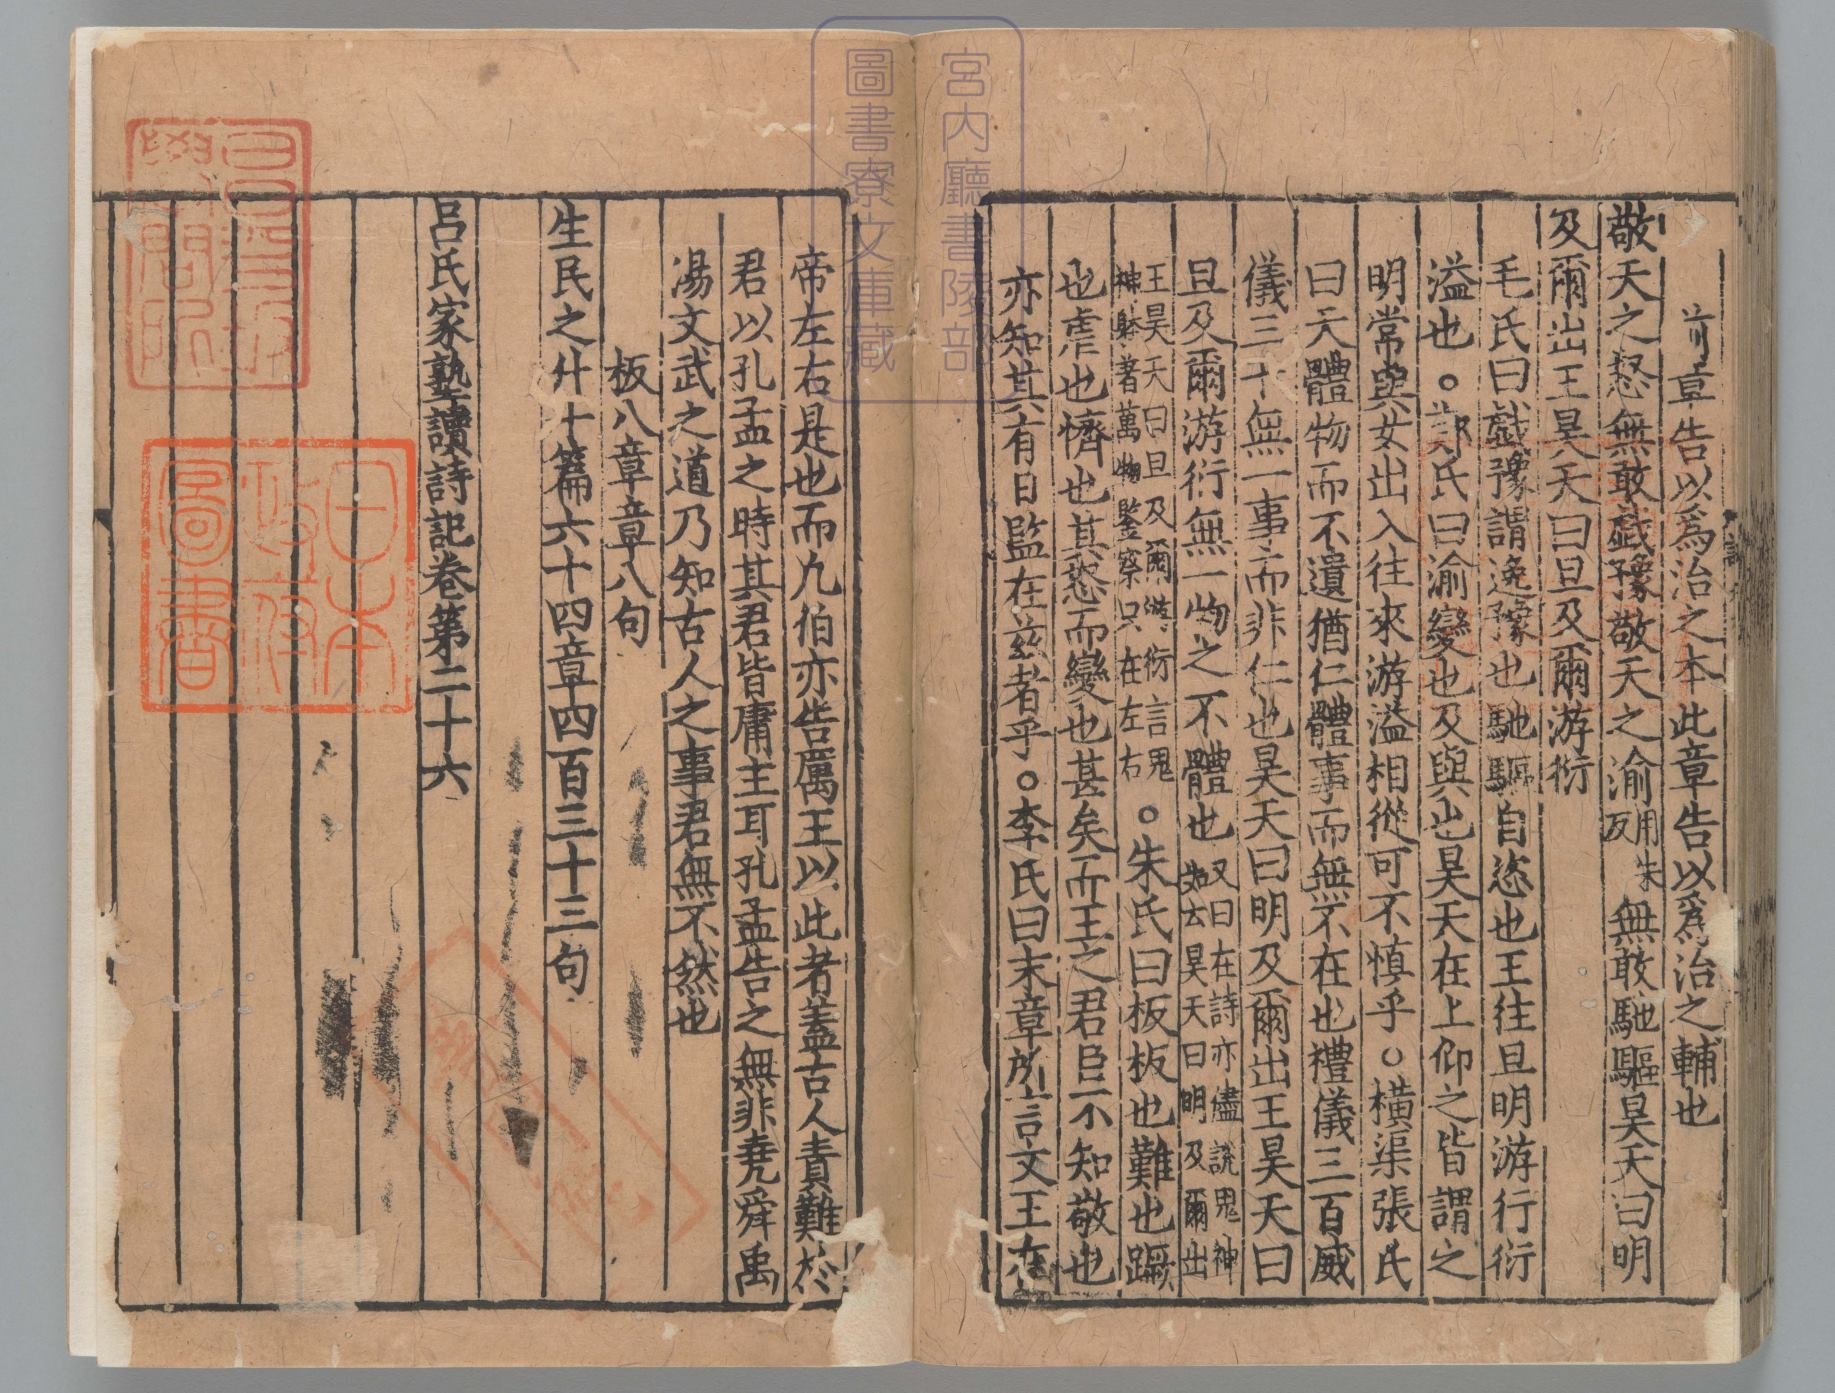 前章告以爲治之本此章告以爲治之輔也
敬天之怒無敢戲豫敬天之渝用朱反無敢馳驅昊天曰明
及爾出王昊天曰旦及爾游衍
毛氏曰戲豫謂逸豫也馳驅自恣也王往旦明游行衍
溢也○鄭氏曰渝變也及與也昊天在上仰之皆謂之
明常與女出入往來游溢相從可不慎乎○橫渠張氏
曰天體物而不遺猶仁體事而無不在也禮儀三百威
儀三千無一事而非仁也昊天曰明及爾出王昊天曰
旦及爾游衍無一物之不體也又曰在詩亦儘說鬼神如云昊天曰明及爾出
王昊天曰旦及爾游衍言鬼神躰著萬物鑒察只在左右○朱氏曰板板也難也蹶
也虐也懠也其怒而變也甚矣而王之君臣不知敬也
亦知其有日監在兹者乎○李氏曰末章所言文王在
帝左右是也而凡伯亦告厲王以此者盖古人責難於
君以孔孟之時其君皆庸主耳孔孟告之無非堯舜禹
湯文武之道乃知古人之事君無不然也
板八章章八句
生民之什十篇六十四章四百三十三句
呂氏家塾讀詩記卷第二十六
宮内廳書陵部
圖書寮文庫藏
日本
政府
圖書